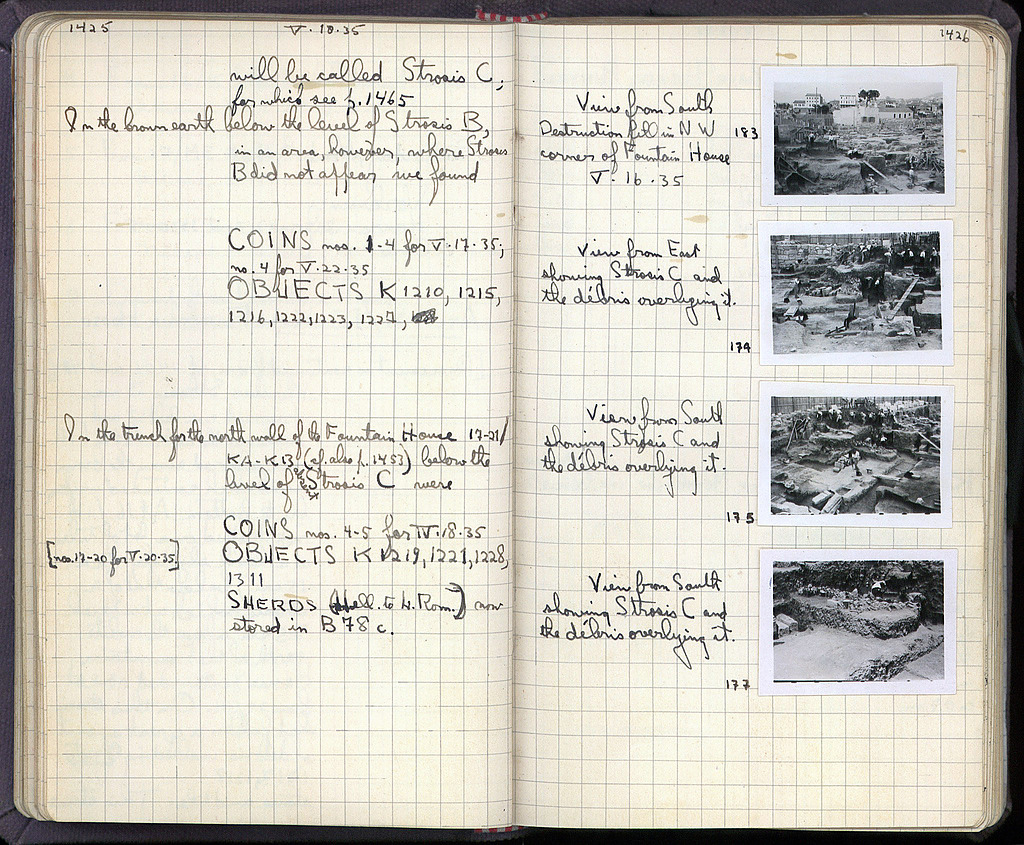 1425
V·18·35
will be called Strosis C,
for which see p. 1465
In the brown earth below the level of Strosis B,
in an area, however, where Strosis
B did not appear we found
COINS nos. 1-4 for V·17·35;
no. 4 for V·22·35
OBJECTS K 1210, 1215,
1216, 1222, 1223, 1227,
In the trench for the north wall of the Fountain House 17-21/
KA-KB (cf. also p. 1453) below the
level of Strosis C were
COINS nos. 4-5 for IV·18·35
[nos. 17-20 for V·20·35]
OBJECTS K 1219, 1221, 1228,
1311
SHERDS (Hell. to L. Rom.) now
stored in B 78 c.
1426
View from South
Destruction fill in NW
corner of Fountain House
V·16·35
183
View from East
showing Strosis C and
the débris overlying it.
174
View from South
showing Strosis C and
the débris overlying it.
175
View from South
showing Strosis C and
the débris overlying it.
177